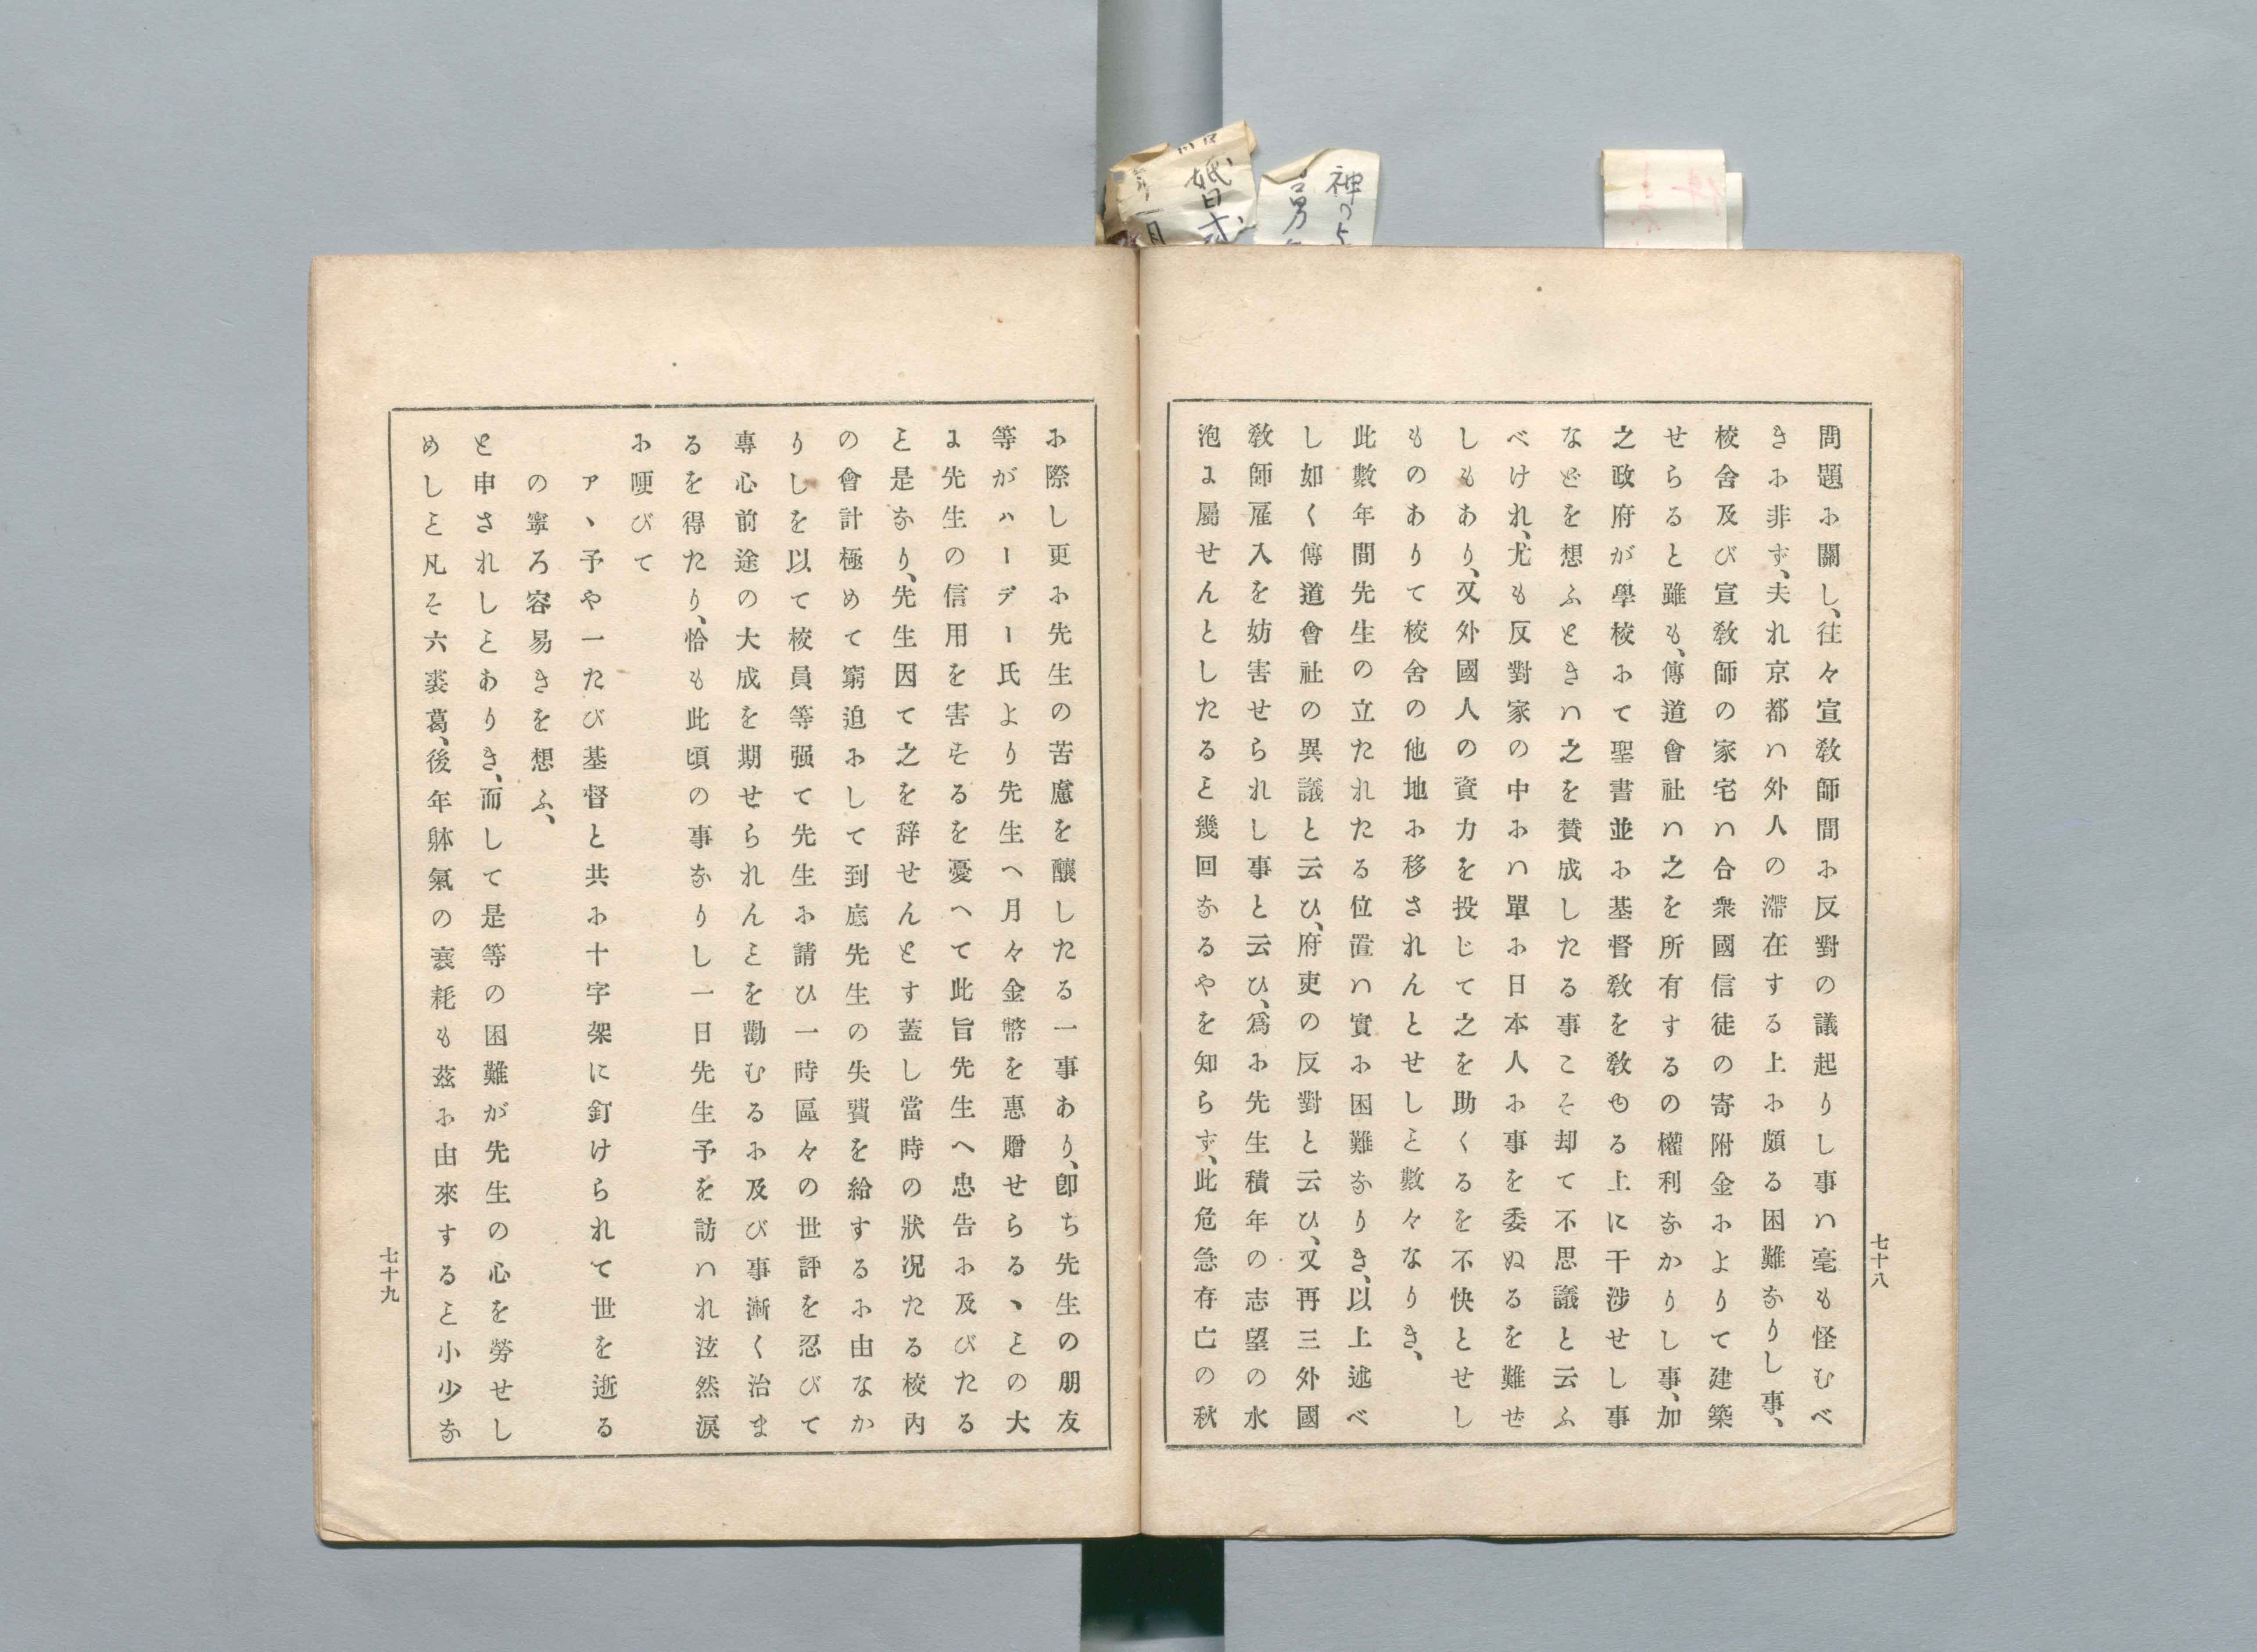 神のよ
婚式
七十八
問題に關し、往々宣敎師間に反對の議起りし事ハ毫も怪むべ
きに非ず、夫れ京都ハ外人の滯在する上に頗る困難なりし事、
校舍及び宣敎師の家宅ハ合衆國信徒の寄附金によりて建築
せらると雖も、傳道會社ハ之を所有するの權利なかりし事、加
之政府が學校にて聖書並に基督敎を敎ゆる上に干涉せし事
などを想ふときハ之を賛成したる事こそ却て不思議と云ふ
べけれ、尤も反對家の中にハ單に日本人に事を委ぬるを難ぜ
しもあり、又外國人の資力を投じて之を助くるを不快とせし
ものありて校舍の他地に移されんとせしこと數々なりき、
此數年間先生の立たれたる位置ハ實に困難なりき、以上述べ
し如く傳道會社の異議と云ひ、府吏の反對と云ひ、又再三外國
敎師雇入を妨害せられし事と云ひ、爲に先生積年の志望の水
泡に屬せんとしたること幾回なるやを知らず、此危急存亡の秋
に際し更に先生の苦慮を釀したる一事あり、卽ち先生の朋友
等がハーデー氏より先生へ月々金幣を惠贈せらるゝことの大
に先生の信用を害するを憂へて此旨先生へ忠告に及びたる
こと是なり、先生因て之を辞せんとす蓋し當時の狀況たる校內
の會計極めて窮迫にして到底先生の失費を給するに由なか
りしを以て校員等强て先生に請ひ一時區々の世評を忍びて
專心前途の大成を期せられんことを勸むるに及び事漸く治ま
るを得たり、恰も此頃の事なりし一日先生予を訪ハれ泫然淚
に哽びて
アヽ予や一たび基督と共に十字架に釘けられて世を逝る
の寧ろ容易きを想ふ、
と申されしことありき、而して是等の困難が先生の心を勞せし
めしこと凡そ六裘葛、後年躰氣の衰耗も茲に由來すること小少な
七十九